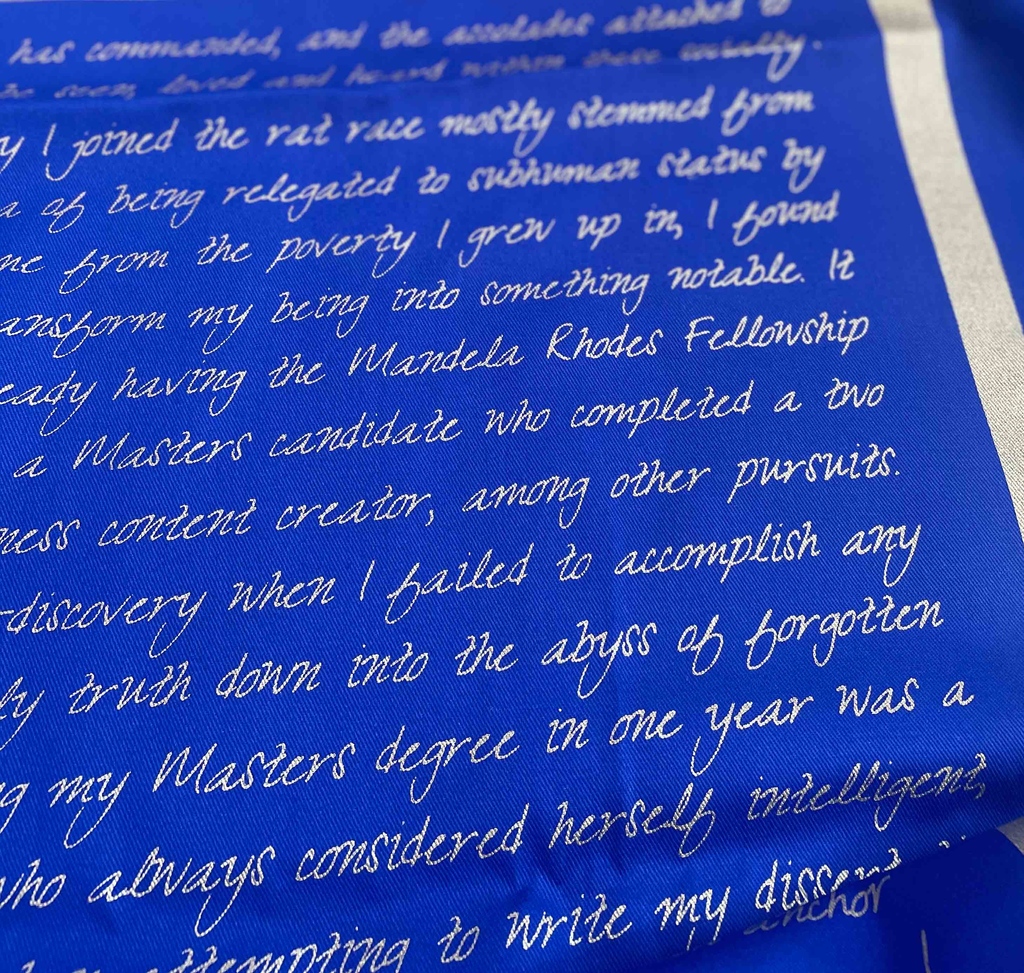 has commanded, and the accolades attached to
be seen, loved and heard within these socially.
y I joined the rat race mostly stemmed from
a of being relegated to subhuman status by
me from the poverty I grew up in, I found
ansform my being into something notable. It
eady having the Mandela Rhodes Fellowship
a Masters candidate who completed a two
ness content creator, among other pursuits.
-discovery when I failed to accomplish any
ly truth down into the abyss of forgotten
ng my Masters degree in one year was a
who always considered herself intelligent,
attempting to write my dissert
anchor